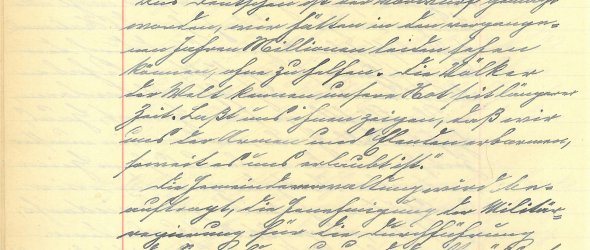 uns Deutschen ist der Vorwurf gemacht
worden, wir hätten in den vergange-
nen Jahren Millionen leiden sehen
können, ohne zu helfen. Die Völker
der Welt kennen unsere Not seit längerer
Zeit. Laßt uns ihnen zeigen, daß wir
uns der Armen und Elenden erbarmen,
soweit es uns erlaubt ist."
Die Gemeindeverwaltung wird be-
auftragt, die Genehmigung der Militär-
regierung für die Durchführung